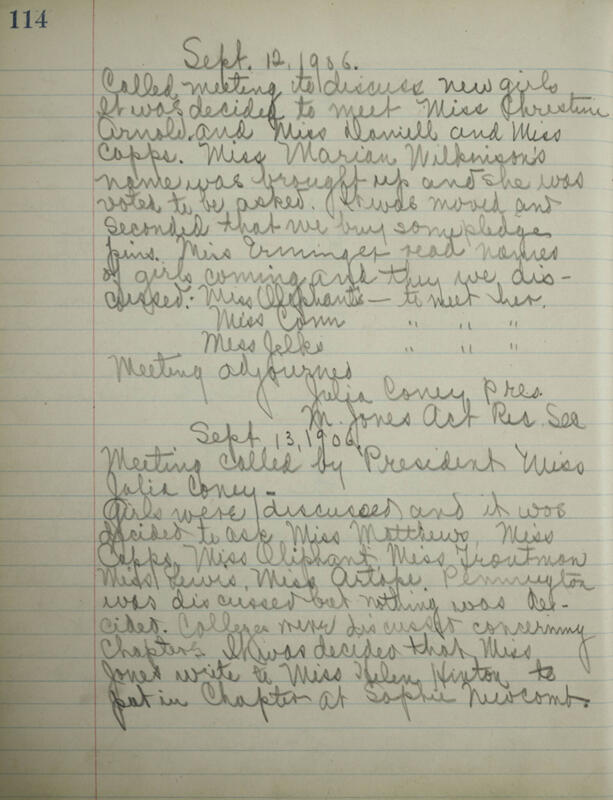 114
Sept. 12, 1906.
Called meeting to discuss new girls
It was decided to meet Miss Christine
Arnold and Miss Daniell and Miss
Capps. Miss Marian Wilkinson's
name was brought up and she was
voted to be asked. It was moved and
seconded that we buy some pledge
pins. Miss Erminger read names
of girls coming and they we dis-
cussed: Miss Oliphant — to meet her.
Miss Conn " " "
Miss Jelks " " "
Meeting adjourned
Julia Coney, Pres.
M. Jones Act Rec Sec
Sept. 13, 1906.
Meeting called by President Miss
Julia Coney –
Girls were discussed and it was
decided to ask Miss Matthews, Miss
Capps, Miss Oliphant, Miss Troutman
Miss Lewis, Miss Artope. Pennington
was discussed but nothing was de-
cided. Colleges were discusst concerning
Chapters. It was decided that Miss
Jones write to Miss Helen Hinton to
put in Chapter at Sophie Newcomb.